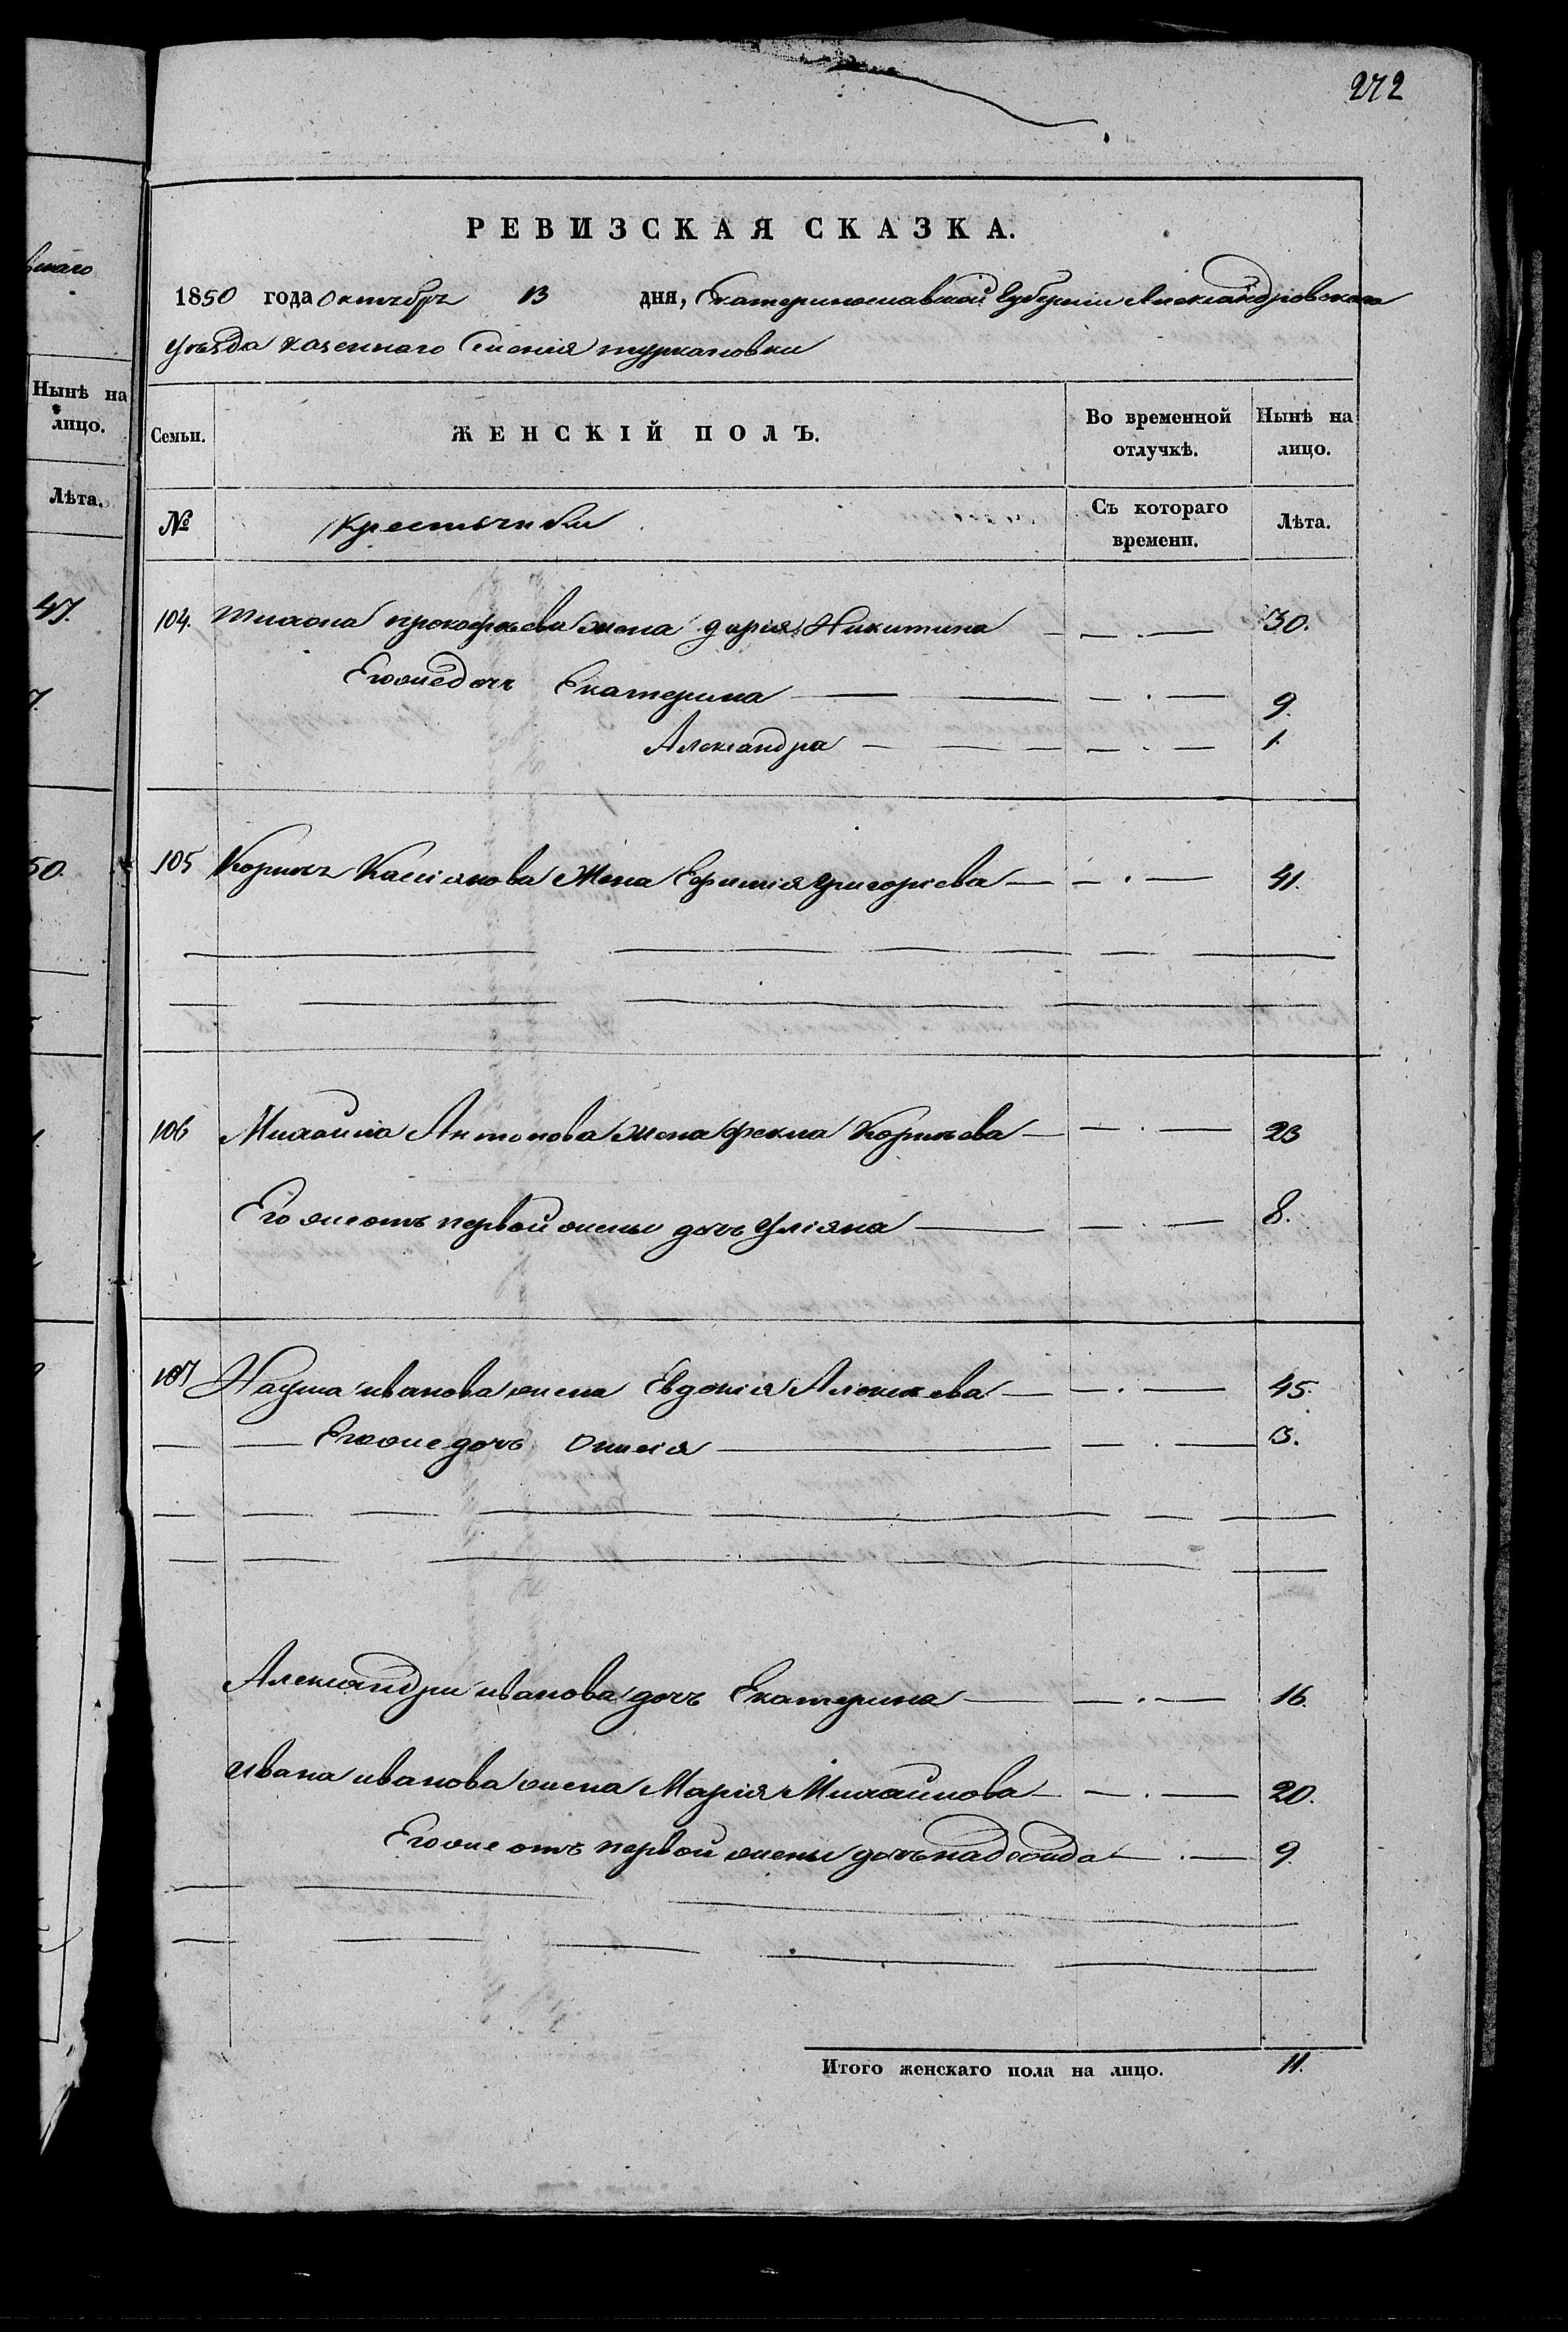 272
вскаго
Нынѣ на
лицо.
Лѣта.
47.
7.
50.
РЕВИЗСКАЯ СКАЗКА.
1850 года Октября 13 дня, Екатеринославской Губернии Александровского
уезда казенного Имения туркановки
Семьи. ЖЕНСКІЙ ПОЛЪ. Во временной отлучкѣ. Нынѣ на лицо.
№ Крестьянки Съ котораго времени. Лѣта.
104. тихона прокофьева жена дария Никитина — . — 30.
Егоже дочь Екатерина — . — 9.
Александра — . — 1.
105 Корнея Кассіянова Жена Ефимия Григорiева — . — 41.
106 Михайла Антонова жена фекла Корнеева — . — 23
Его же отъ первой жены дочь Улiяна — . — 8.
107 Наума иванова жена Евдокия Алексеева — . — 45.
Егоже дочь — . — 3.
Александра иванова дочь Екатерина — . — 16.
ивана иванова жена Мария Михайлова — . — 20.
Егоже отъ первой жены дочь надежда — . — 9.
Итого женскаго пола на лицо. 11.